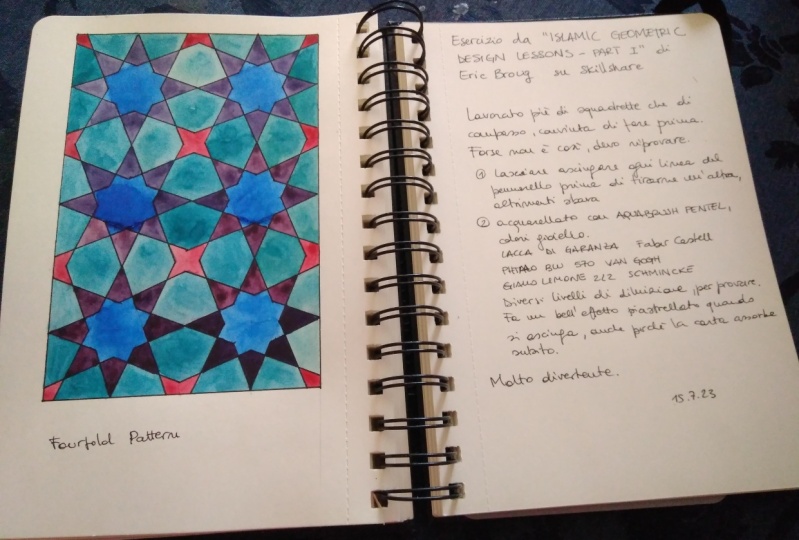 Fourfold Pattern
Esercizio da "ISLAMIC GEOMETRIC
DESIGN LESSONS - PART I" di
Eric Broug su Skillshare
Lavorato più di squadrette che di
compasso, convinta di fare prima.
Forse non è così, devo riprovare.
① Lasciare asciugare ogni linea del
pennarello prima di tirarne un'altra,
altrimenti sbava
② acquarellato con AQUABRUSH PENTEL,
colori gioiello.
LACCA DI GARANZA Faber Castell
PHTALO BLU 570 VAN GOGH
GIALLO LIMONE 212 SCHMINCKE
Diversi livelli di diluizione, per provare.
Fa un bell'effetto piastrellato quando
si asciuga, anche perché la carta assorbe
subito.
Molto divertente.
15.7.23